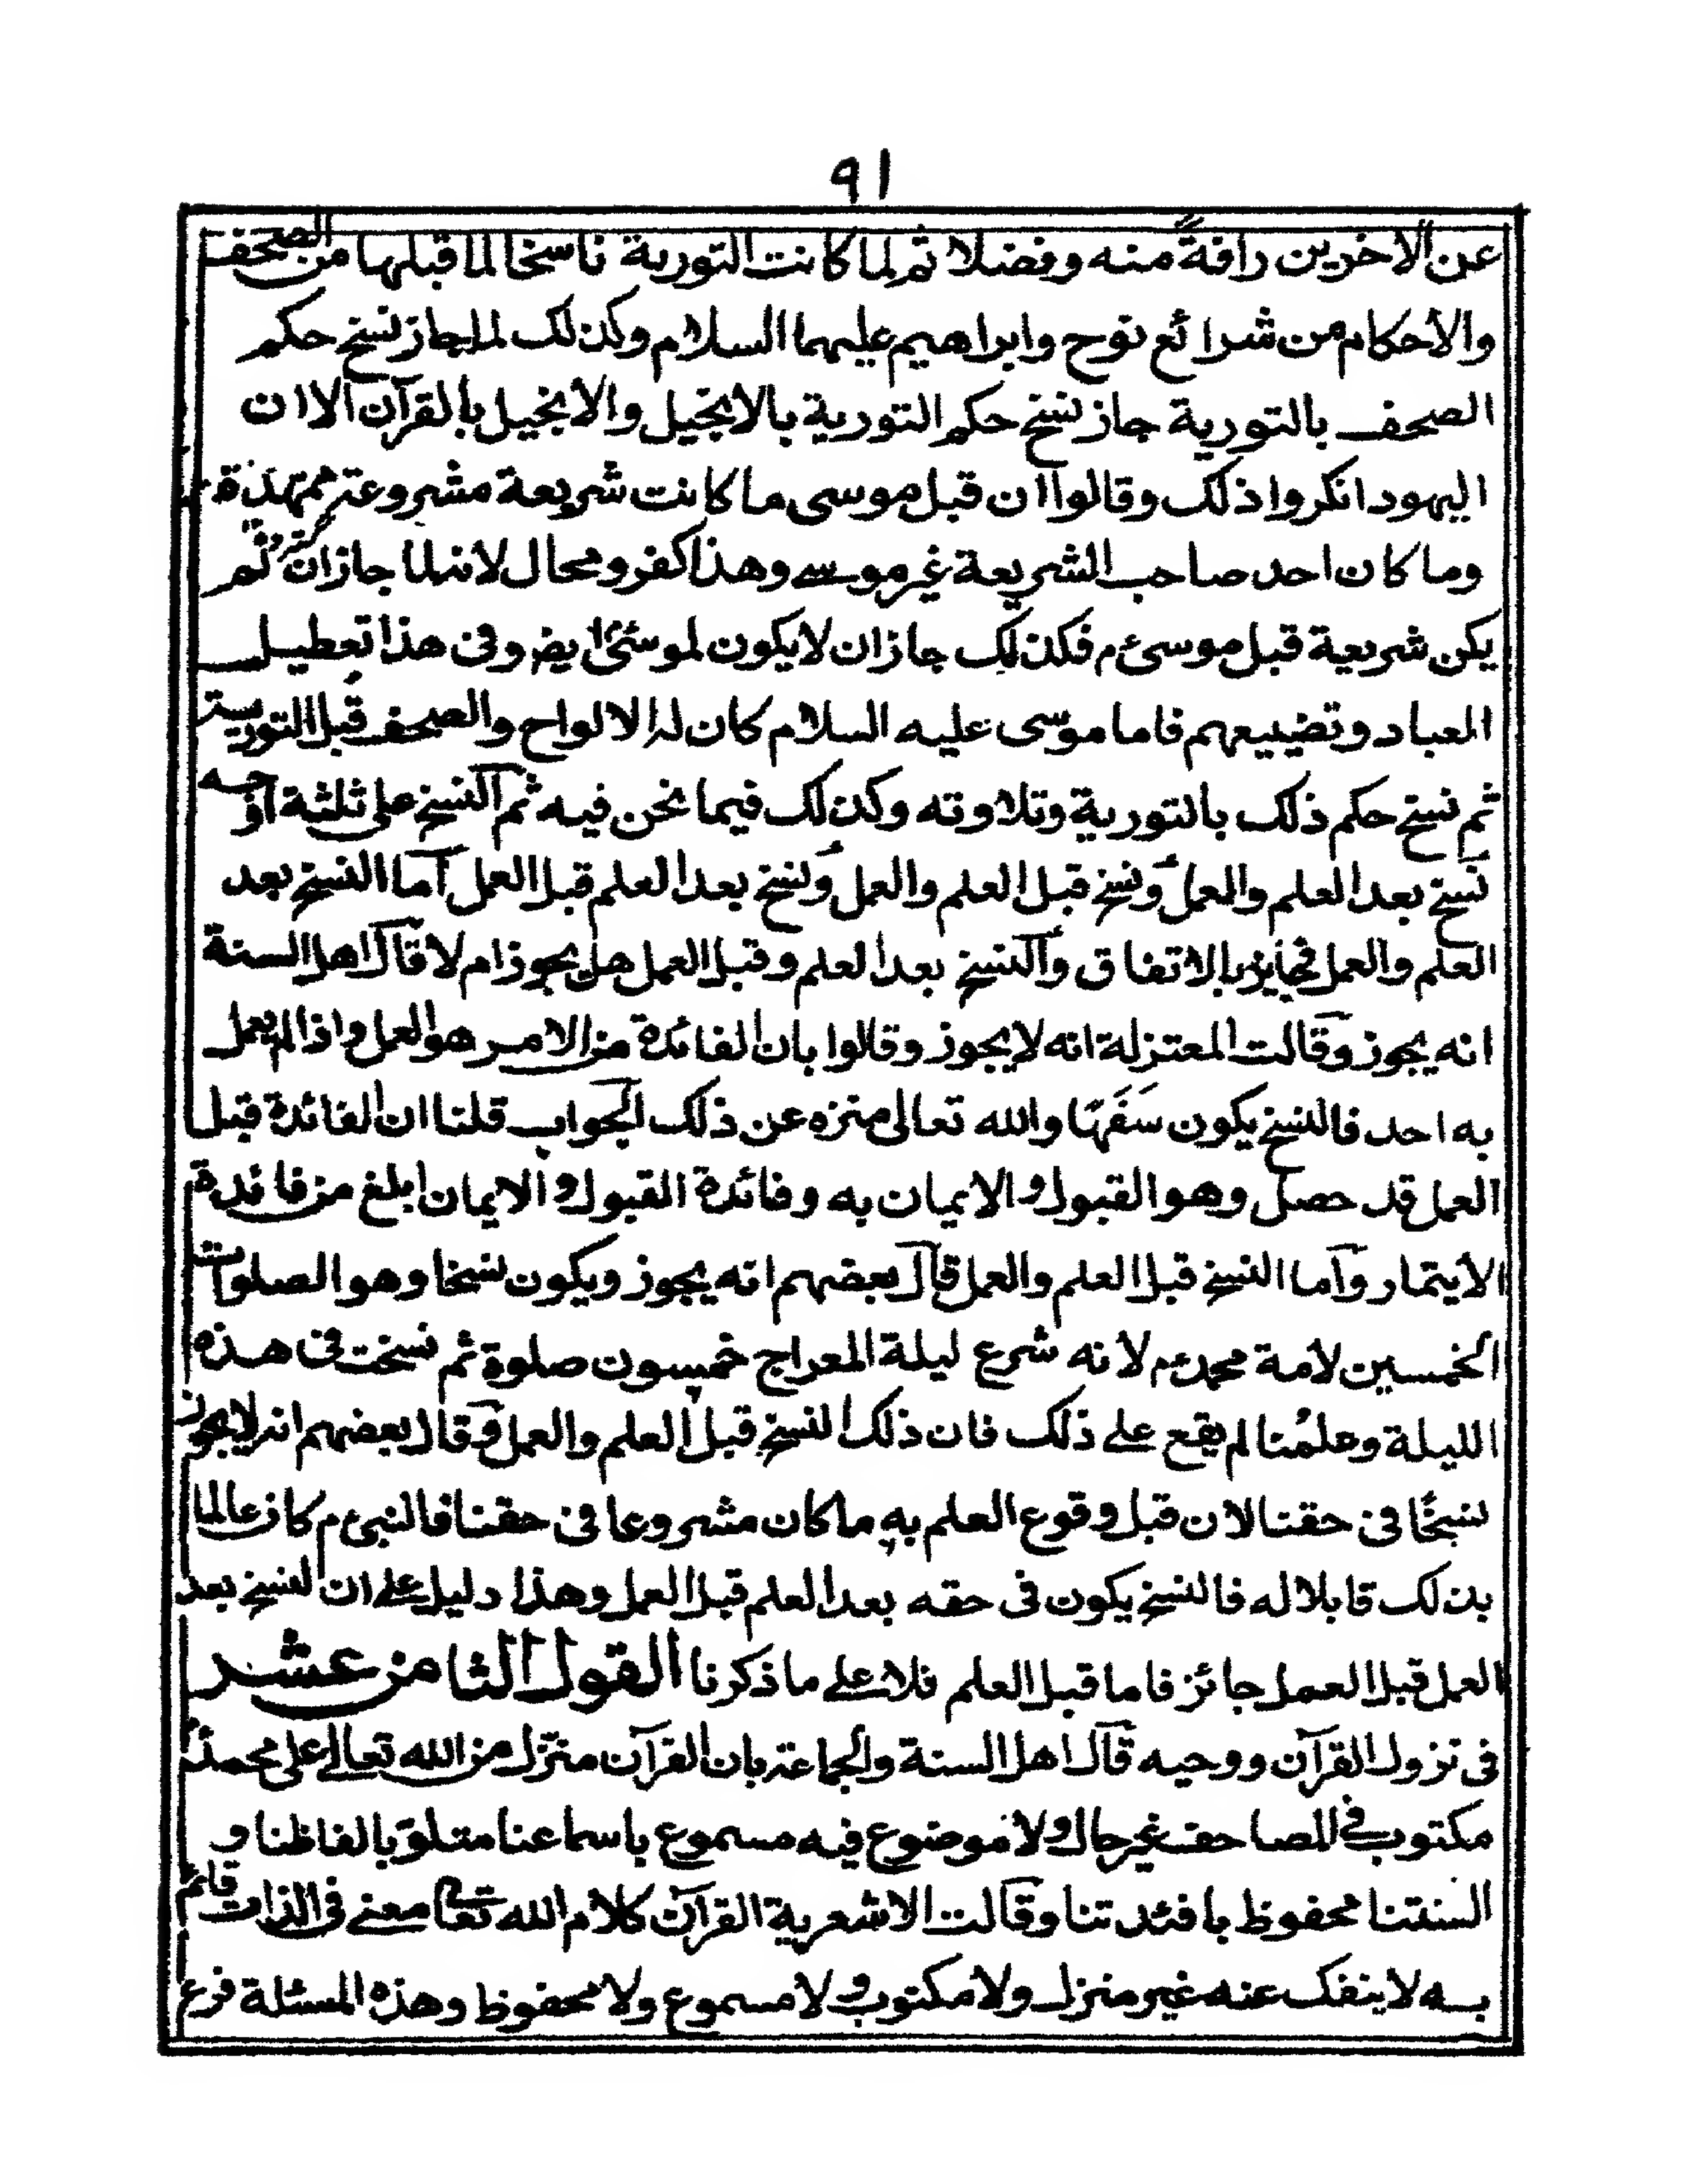 ٩١
عن الاخرين رافةً منه وفضلا ثم لما كانت التورية ناسخا لما قبلها من الصحف
والأحكام من شرائع نوح وابراهيم عليهما السلام وكذلك لما جاز نسخ حكم
الصحف بالتورية جاز نسخ حكم التورية بالانجيل والانجيل بالقرآن الا ان
اليهود انكروا ذلك وقالوا ان قبل موسى ما كانت شريعة مشروعة ممهدة
وما كان احد صاحب الشريعة غير موسى وهذا كفر ومحال لانه لما جاز ان لم
يكن شريعة قبل موسىٰ ء م فكذلك جاز ان لا يكون لموسىٰ ايض وفى هذا تعطيل
العباد وتضييعهم فاما موسى عليه السلام كان له الالواح والصحف قبل التورية
ثم نسخ حكم ذلك بالتورية وتلاوته وكذلك فيما نحن فيه ثم النسخ على ثلثة اوجه
نسخ بعد العلم والعمل ونسخ قبل العلم والعمل ونسخ بعد العلم قبل العمل آما النسخ بعد
العلم والعمل فجايز بالاتفاق وأالنسخ بعد العلم وقبل العمل هل يجوز ام لا قال اهل السنة
انه يجوز وقالت المعتزلة انه لا يجوز وقالوا بان الفائدة من الامر هو العمل واذا لم يعمل
به احد فالنسخ يكون سَفَهًا والله تعالى منزه عن ذلك الجواب قلنا ان الفائدة قبل
العمل قد حصل وهو القبول والايمان به وفائدة القبول والايمان ابلغ من فائدة
الايتمار وآما النسخ قبل العلم والعمل قال بعضهم انه يجوز ويكون نسخا وهو الصلوات
الخمسين لامة محمد ء م لانه شرع ليلة المعراج خمسون صلوة ثم نسخت فى هذه
الليلة وعلمُنا لم يقع على ذلك فان ذلك النسخ قبل العلم والعمل وقال بعضهم انه لا يجوز
نسخًا فى حقنا لان قبل وقوع العلم بهِ ما كان مشروعا فى حقنا فالنبى ء م كان عالما
بذلك قابلا له فالنسخ يكون فى حقه بعد العلم قبل العمل وهذا دليل على ان النسخ بعد
العمل قبل العمل جائز فاما قبل العلم فلا على ما ذكرنا القول الثامن عشر
فى نزول القرآن ووحيه قال اهل السنة والجماعة بان القرآن منزل من الله تعالى على محمد
مكتوب فى المصاحف غير حال ولا موضوع فيه مسموع باسماعنا متلو بالفاظنا و
السنتنا محفوظ بافئدتنا وقالت الاشعرية القرآن كلام الله تعالى معنى فى الذات قائم
به لا ينفك عنه غير منزل ولا مكتوب ولا مسموع ولا محفوظ وهذه المسئلة فرع